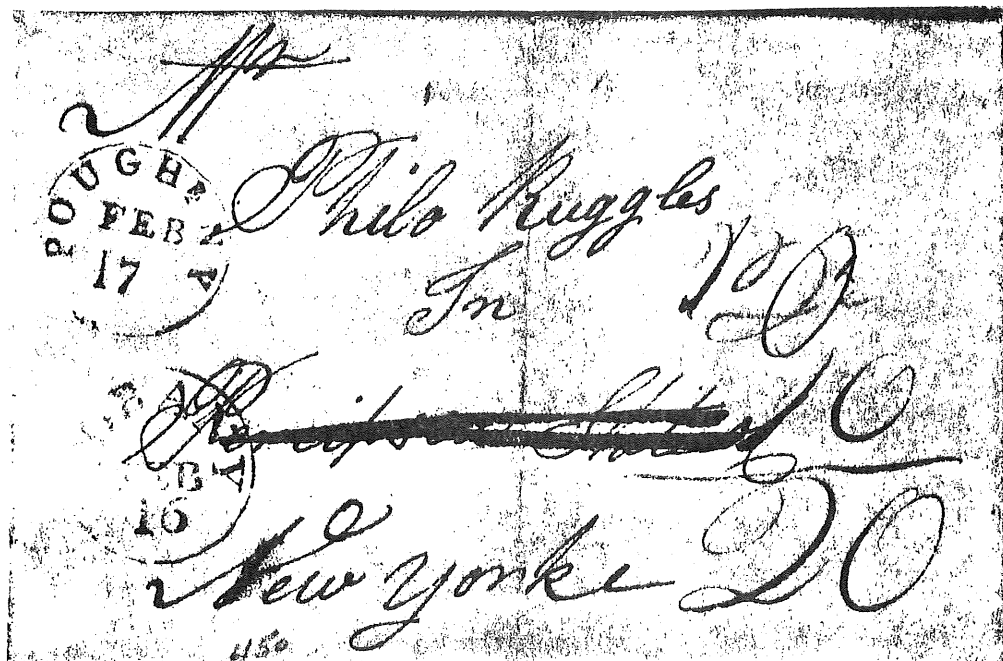 Mr
POUGHKE
FEB
17
Philo Ruggles
In
10
10
FEB
16
New Yorke 20
450